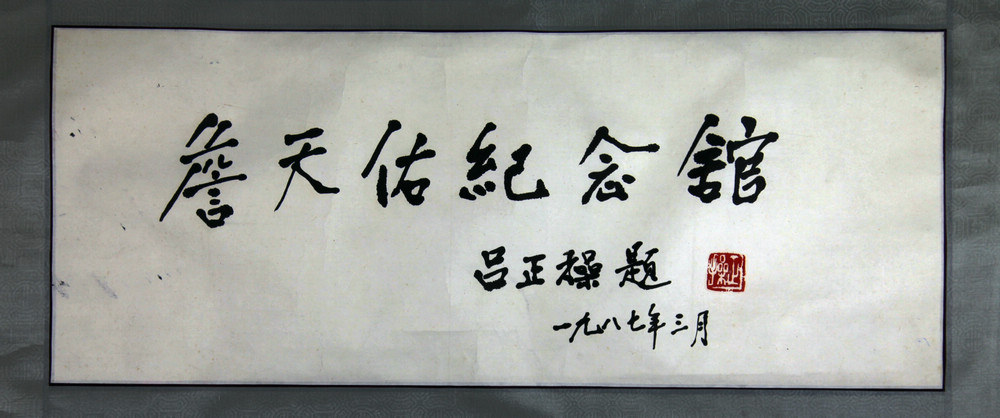 詹天佑紀念舘
吕正操题
一九八七年三月
正操